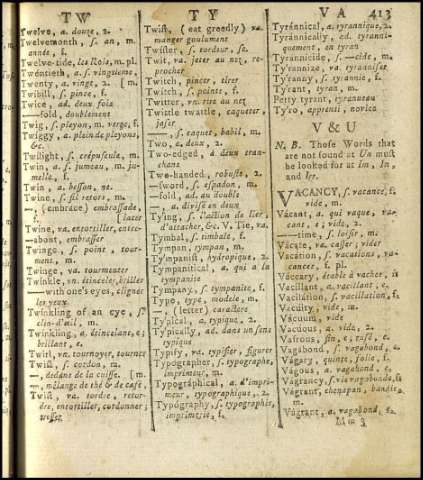 TW
TY
VA
413
Twelve, a. douze, 2.
Twelvemonth, s. an, m.
année, f.
Twelve-tide, les Rois, m. pl.
Twéntieth, a. s. vingtieme,
Twenty, a. vinge, 2. [m.
Twibill, s. pince, f.
Twice, ad. deux fois
—fold, doublement
Twig, s. pleyon, m. verge, f.
Twiggy, a. plein de pleyons,
&c.
Twilight, s. crépuscule, m.
Twin, a. s. jumeau, m. ju-
melle, f.
Twin, a. besson, ne.
Twine, s. fil retors, m.
— (embrace) embrassade,
[lacer
Twine, va. entortiller, entre-
—about, embrasser
Twinge, s. point, tour-
ment, m.
Twinge, va. tourmenter
Twinkle, vn. étinceler, briller
—with one's eyes, cligner
les yeux.
Twinkling of an eye, s.
clin-d'œil, m.
Twinkling, a. étincelant, e;
brillant, e.
Twirl, va. tournoyer, tourner
Twist, s. cordon, m.
—, dedans de la cuisse. [m.
—, mélange de thé & de café,
Twist, va. tordre, retor-
dre, entortiller, cordonner;
tresser
Twist, (eat greedily) va.
manger goulument
Twister, s. tordeur, se.
Twit, va. jeter au nez, re-
procher
Twitch, pincer, tirer
Twitch, s. pointe, f.
Twitter, vn. rire au nez
Twittle twattle, caqueter,
jaser
—, s. caquet, babil, m.
Two, a. deux, 2.
Two-edged, à deux tran-
chans
Two-handed, robuste, 2.
—sword, s. espadon, m.
—fold, ad. au double
—, a. divisé en deux
Ty'ing, s. l'action de lier
d'attacher, &c. V. Tie, va.
Tymbal, s. timbale, f.
Tympan, tympan, m.
Ty'mpanist, hydropique, 2.
Tympanítical, a. qui a la
tympanite
Tympany, s. tympanite, f.
Type, type, modele, m.
—, (letter) caractere
Ty'pical, a. typique, 2.
Ty'pically, ad. dans un sens
typique
Typify, va. typifier, figurer
Typographer, s. typographe,
imprimeur, m.
Typographical, a. d'impri-
meur, typographique, 2.
Typógraphy, s. typographie,
imprimerie, f.
Tyránnical, a. tyrannique, 2.
Tyránnically, ad. tyranni-
quement, en tyran
Tyrannicide, s.—cide, m.
Ty'rannize, va. tyranniser
Ty'ranny, s. tyrannie, f.
Ty'rant, tyran, m.
Petty tyrant, tyranneau
Ty'ro, apprenti, novice
V & U
N. B. Those Words that
are not found at Un must
be looked for at Im, In,
and Irr.
VACANCY, s. vacance, f.
vide, m.
Vácant, a. qui vaque, va-
cant, e; vide, 2.
—time, s. loisir, m.
Vácate, va. casser; vider
Vacátion, s. vacations, va-
cances, f. pl.
Váccary, étable à vacher, is
Vacillant, a. vacillant, e.
Vacillátion, s. vacillation, f.
Vacúity, vide, m.
Vácuum, vide
Vácuous, a. vide, 2.
Vafrous, fin, e; rusé, e.
Vágabond, s. vagabond, e.
Vágary, quinte, folie, f.
Vágous, a. vagabond, e.
Vágrancy, s. vie vagabonde, f.
Vágrant, chenapan, bandit,
m.
Vágrant, a. vagabond, e2.
M m 3